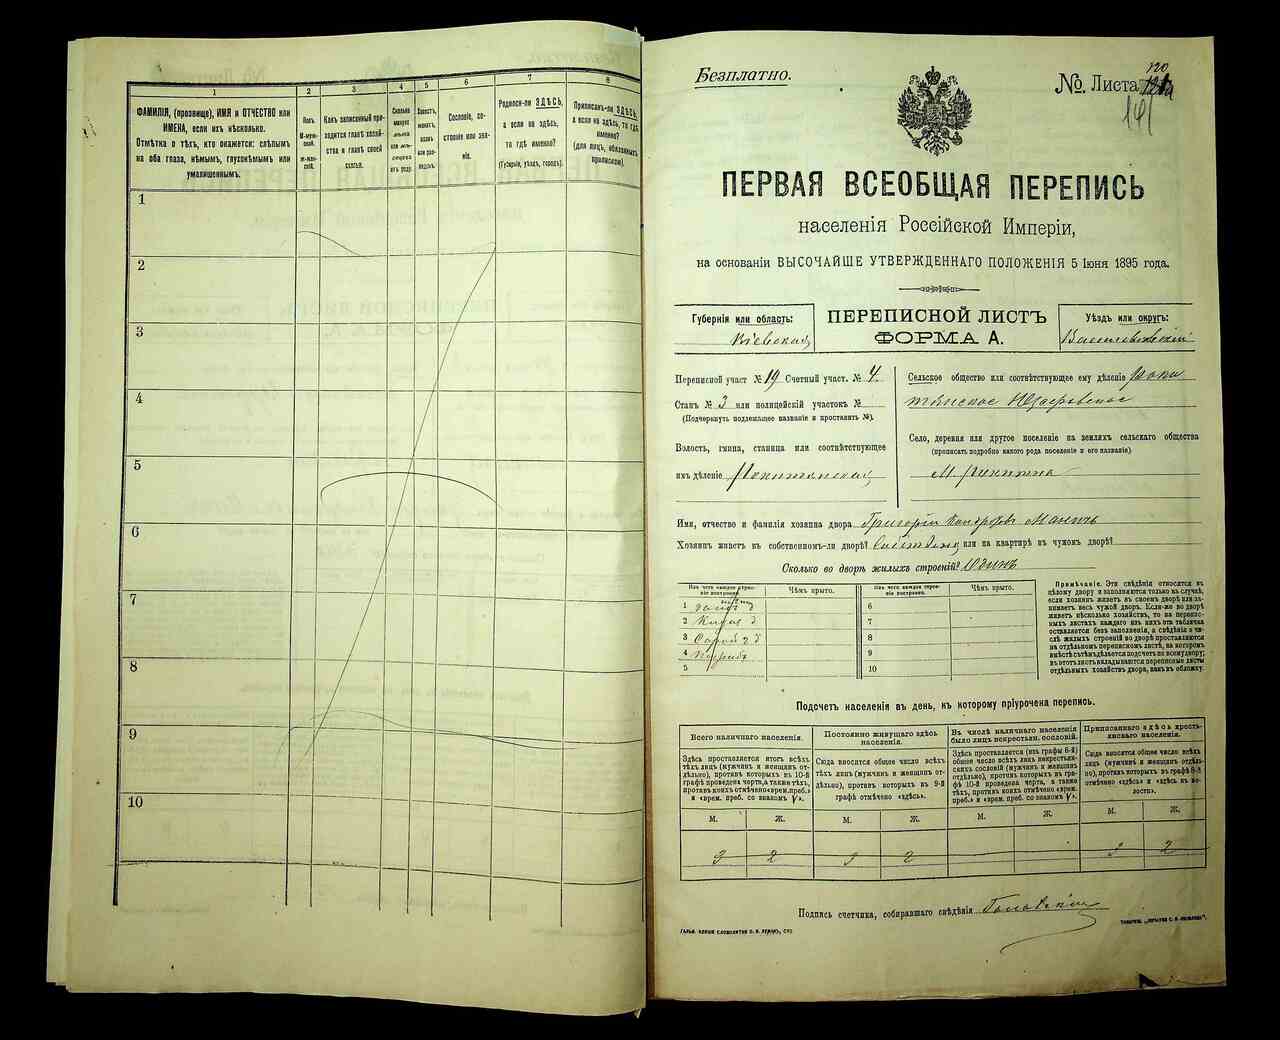 1
2
3
4
5
6
7
8
ФАМИЛІЯ, (прозвище), ИМЯ и ОТЧЕСТВО или
ИМЕНА, если ихъ нѣсколько.
Отмѣтка о тѣхъ, кто окажется: слѣпымъ
на оба глаза, нѣмымъ, глухонѣмымъ или
умалишеннымъ.
Полъ.
М-муж-
ской.
Ж-жен-
скій.
Какъ записанный при-
ходится главѣ хозяй-
ства и главѣ своей
семьи.
Сколько
минуло
лѣтъ
или мѣ-
сяцевъ
отъ роду.
Сословіе, со-
стояніе или зва-
ніе.
Родился-ли ЗДѢСЬ,
а если не здѣсь,
то гдѣ именно?
(Губернія, уѣздъ, городъ).
Приписанъ-ли ЗДѢСЬ,
а если не здѣсь, то гдѣ
именно?
(для лицъ, обязанныхъ
припискою).
1
2
3
4
5
6
7
8
9
10
Безплатно.
№ Листа 120
ПЕРВАЯ ВСЕОБЩАЯ ПЕРЕПИСЬ
населенія Россійской Имперіи,
на основаніи ВЫСОЧАЙШЕ УТВЕРЖДЕННАГО ПОЛОЖЕНІЯ 5 Іюня 1895 года.
Губернія или область:
Кіевская
ПЕРЕПИСНОЙ ЛИСТЪ
ФОРМА А.
Уѣздъ или округъ:
Васильковскій
Переписной участ № 19 Счетный участ. № 4.
Станъ № 3 или полицейскій участокъ №
(Подчеркнуть подлежащее названіе и проставить №).
Волость, гмина, станица или соотвѣтствующее
имъ дѣленіе
Сельское общество или соотвѣтствующее ему дѣленіе
Село, деревня или другое поселеніе на земляхъ сельскаго общества
(прописать подробно какого рода поселеніе и его названіе)
Имя, отчество и фамилія хозяина двора Григорій
Хозяинъ живетъ въ собственномъ-ли дворѣ? или на квартирѣ въ чужомъ дворѣ?
Сколько во дворѣ жилыхъ строеній? Одинъ
Изъ чего каждое строе-
ніе построено.
Чѣмъ крыто.
Изъ чего каждое строе-
ніе построено.
Чѣмъ крыто.
1
2
3 Сарай 2
4
5
6
7
8
9
10
Примѣчаніе. Эти свѣдѣнія относятся къ
цѣлому двору и заполняются только въ случаѣ,
если хозяинъ живетъ въ своемъ дворѣ или за-
нимаетъ весь чужой дворъ. Если-же во дворѣ
живетъ нѣсколько хозяйствъ, то на перепис-
ныхъ листахъ каждаго изъ нихъ эта табличка
оставляется безъ заполненія, а свѣдѣнія о чи-
слѣ жилыхъ строеній во дворѣ проставляются
на отдѣльномъ переписномъ листѣ, на которомъ
вмѣстѣ съ тѣмъ дѣлается подсчетъ по всему двору;
въ этотъ листъ вкладываются переписные листы
отдѣльныхъ хозяйствъ двора, какъ въ обложку.
Подсчетъ населенія въ день, къ которому пріурочена перепись.
Всего наличнаго населенія.
Постоянно живущаго здѣсь
населенія.
Въ числѣ наличнаго населенія
было лицъ некрестьян. сословій.
Приписаннаго здѣсь кресть-
янскаго населенія.
Здѣсь проставляется итогъ всѣхъ
тѣхъ лицъ (мужчинъ и женщинъ от-
дѣльно), противъ которыхъ въ 10-й
графѣ проведена черта, а также тѣхъ,
противъ коихъ отмѣчено «врем. преб.»
и «врем. преб. со знакомъ V».
Сюда вносится общее число всѣхъ
тѣхъ лицъ (мужчинъ и женщинъ от-
дѣльно), противъ которыхъ въ 9-й
графѣ отмѣчено «здѣсь».
Здѣсь проставляется (изъ графы 6-й)
общее число всѣхъ лицъ некрестьян-
скихъ сословій (мужчинъ и женщинъ
отдѣльно), противъ которыхъ въ гра-
фѣ 10-й проведена черта, а также
тѣхъ, противъ коихъ отмѣчено «врем.
преб.» и «врем. преб. со знакомъ V».
Сюда вносится общее число всѣхъ
лицъ (мужчинъ и женщинъ отдѣль-
но), противъ которыхъ въ графѣ 8-й
отмѣчено «здѣсь» и «здѣсь въ во-
лости».
М.
Ж.
М.
Ж.
М.
Ж.
М.
Ж.
3
2
3
2
3
2
Подпись счетчика, собиравшаго свѣдѣнія